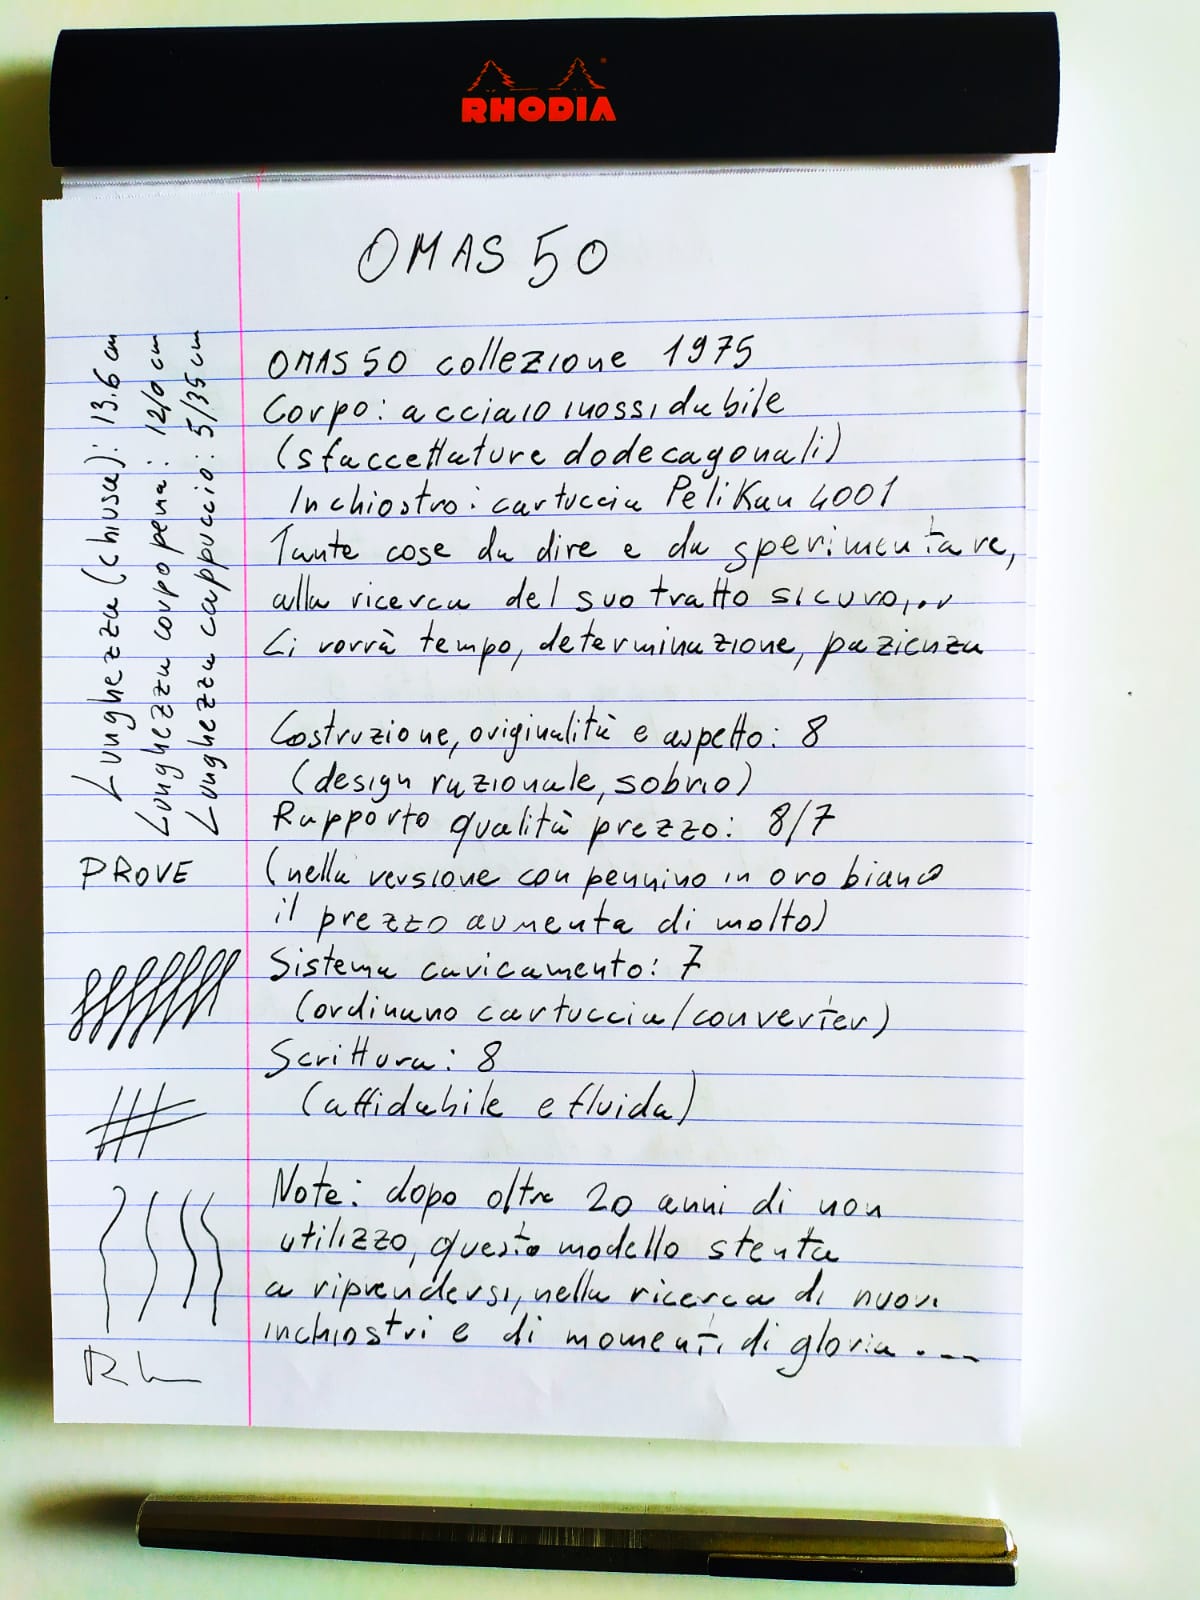 RHODIA
OMAS 50
Lunghezza (chiusa): 13.6 cm
Lunghezza corpo penna: 12/0 cm
Lunghezza cappuccio: 5/35 cm
OMAS 50 collezione 1975
Corpo: acciaio inossidabile
(sfaccettature dodecagonali)
Inchiostro: cartuccia Pelikan 4001
Tante cose da dire e da sperimentare,
alla ricerca del suo tratto sicuro,..
Ci vorrà tempo, determinazione, pazienza
Costruzione, originalità e aspetto: 8
(design razionale, sobrio)
Rapporto qualità prezzo: 8/7
(nella versione con pennino in oro bianco
il prezzo aumenta di molto)
Sistema caricamento: 7
(ordinario cartuccia/converter)
Scrittura: 8
(affidabile e fluida)
Note: dopo oltre 20 anni di non
utilizzo, questo modello stenta
a riprendersi, nella ricerca di nuovi
inchiostri e di momenti di gloria....
PROVE